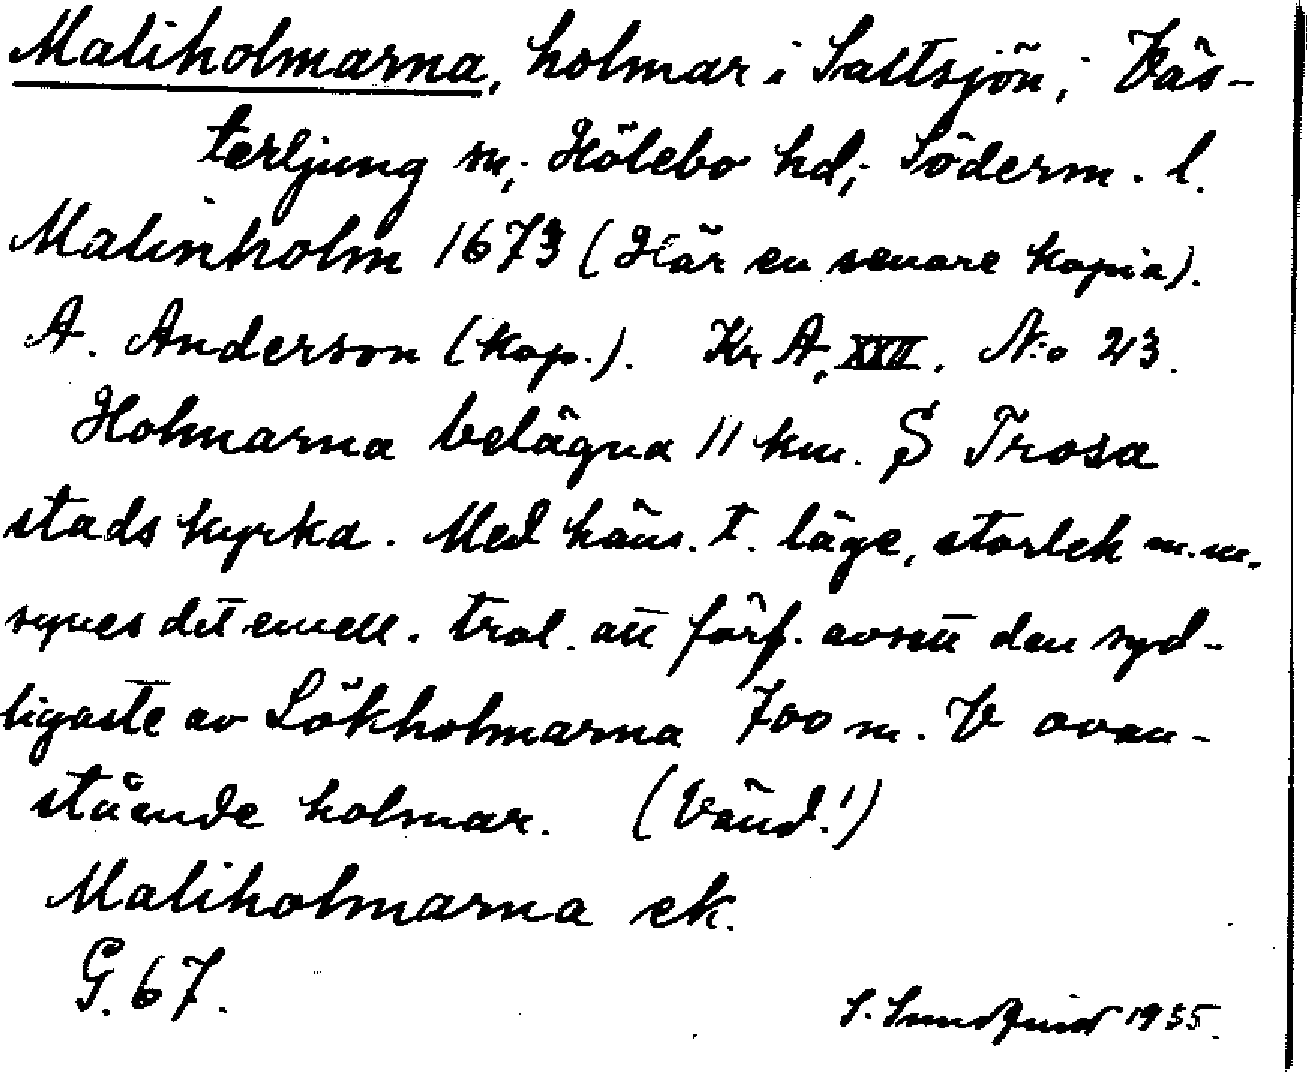 Maliholmarna, holmar i Saltsjön, Väs-
terljung sn, Hölebo hd, Söderm. l.
Malinholm 1673 (Här en senare kopia).
A. Anderson (kop.). Kr A, XXII. N:o 23.
Holmarna belägna 11 km. S Trosa
stads kyrka. Med häns. t. läge, storlek m.m.
synes det emell. trol. att förf. avsett den syd-
ligaste av Lökholmarna 700 m. V ovan-
stående holmar. (Vänd!)
Maliholmarna ek.
G. 67.
S. Sundquist 1935.